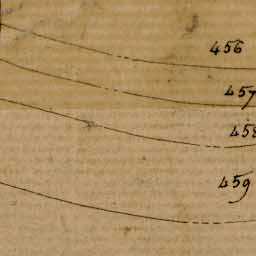 456
457
458
459